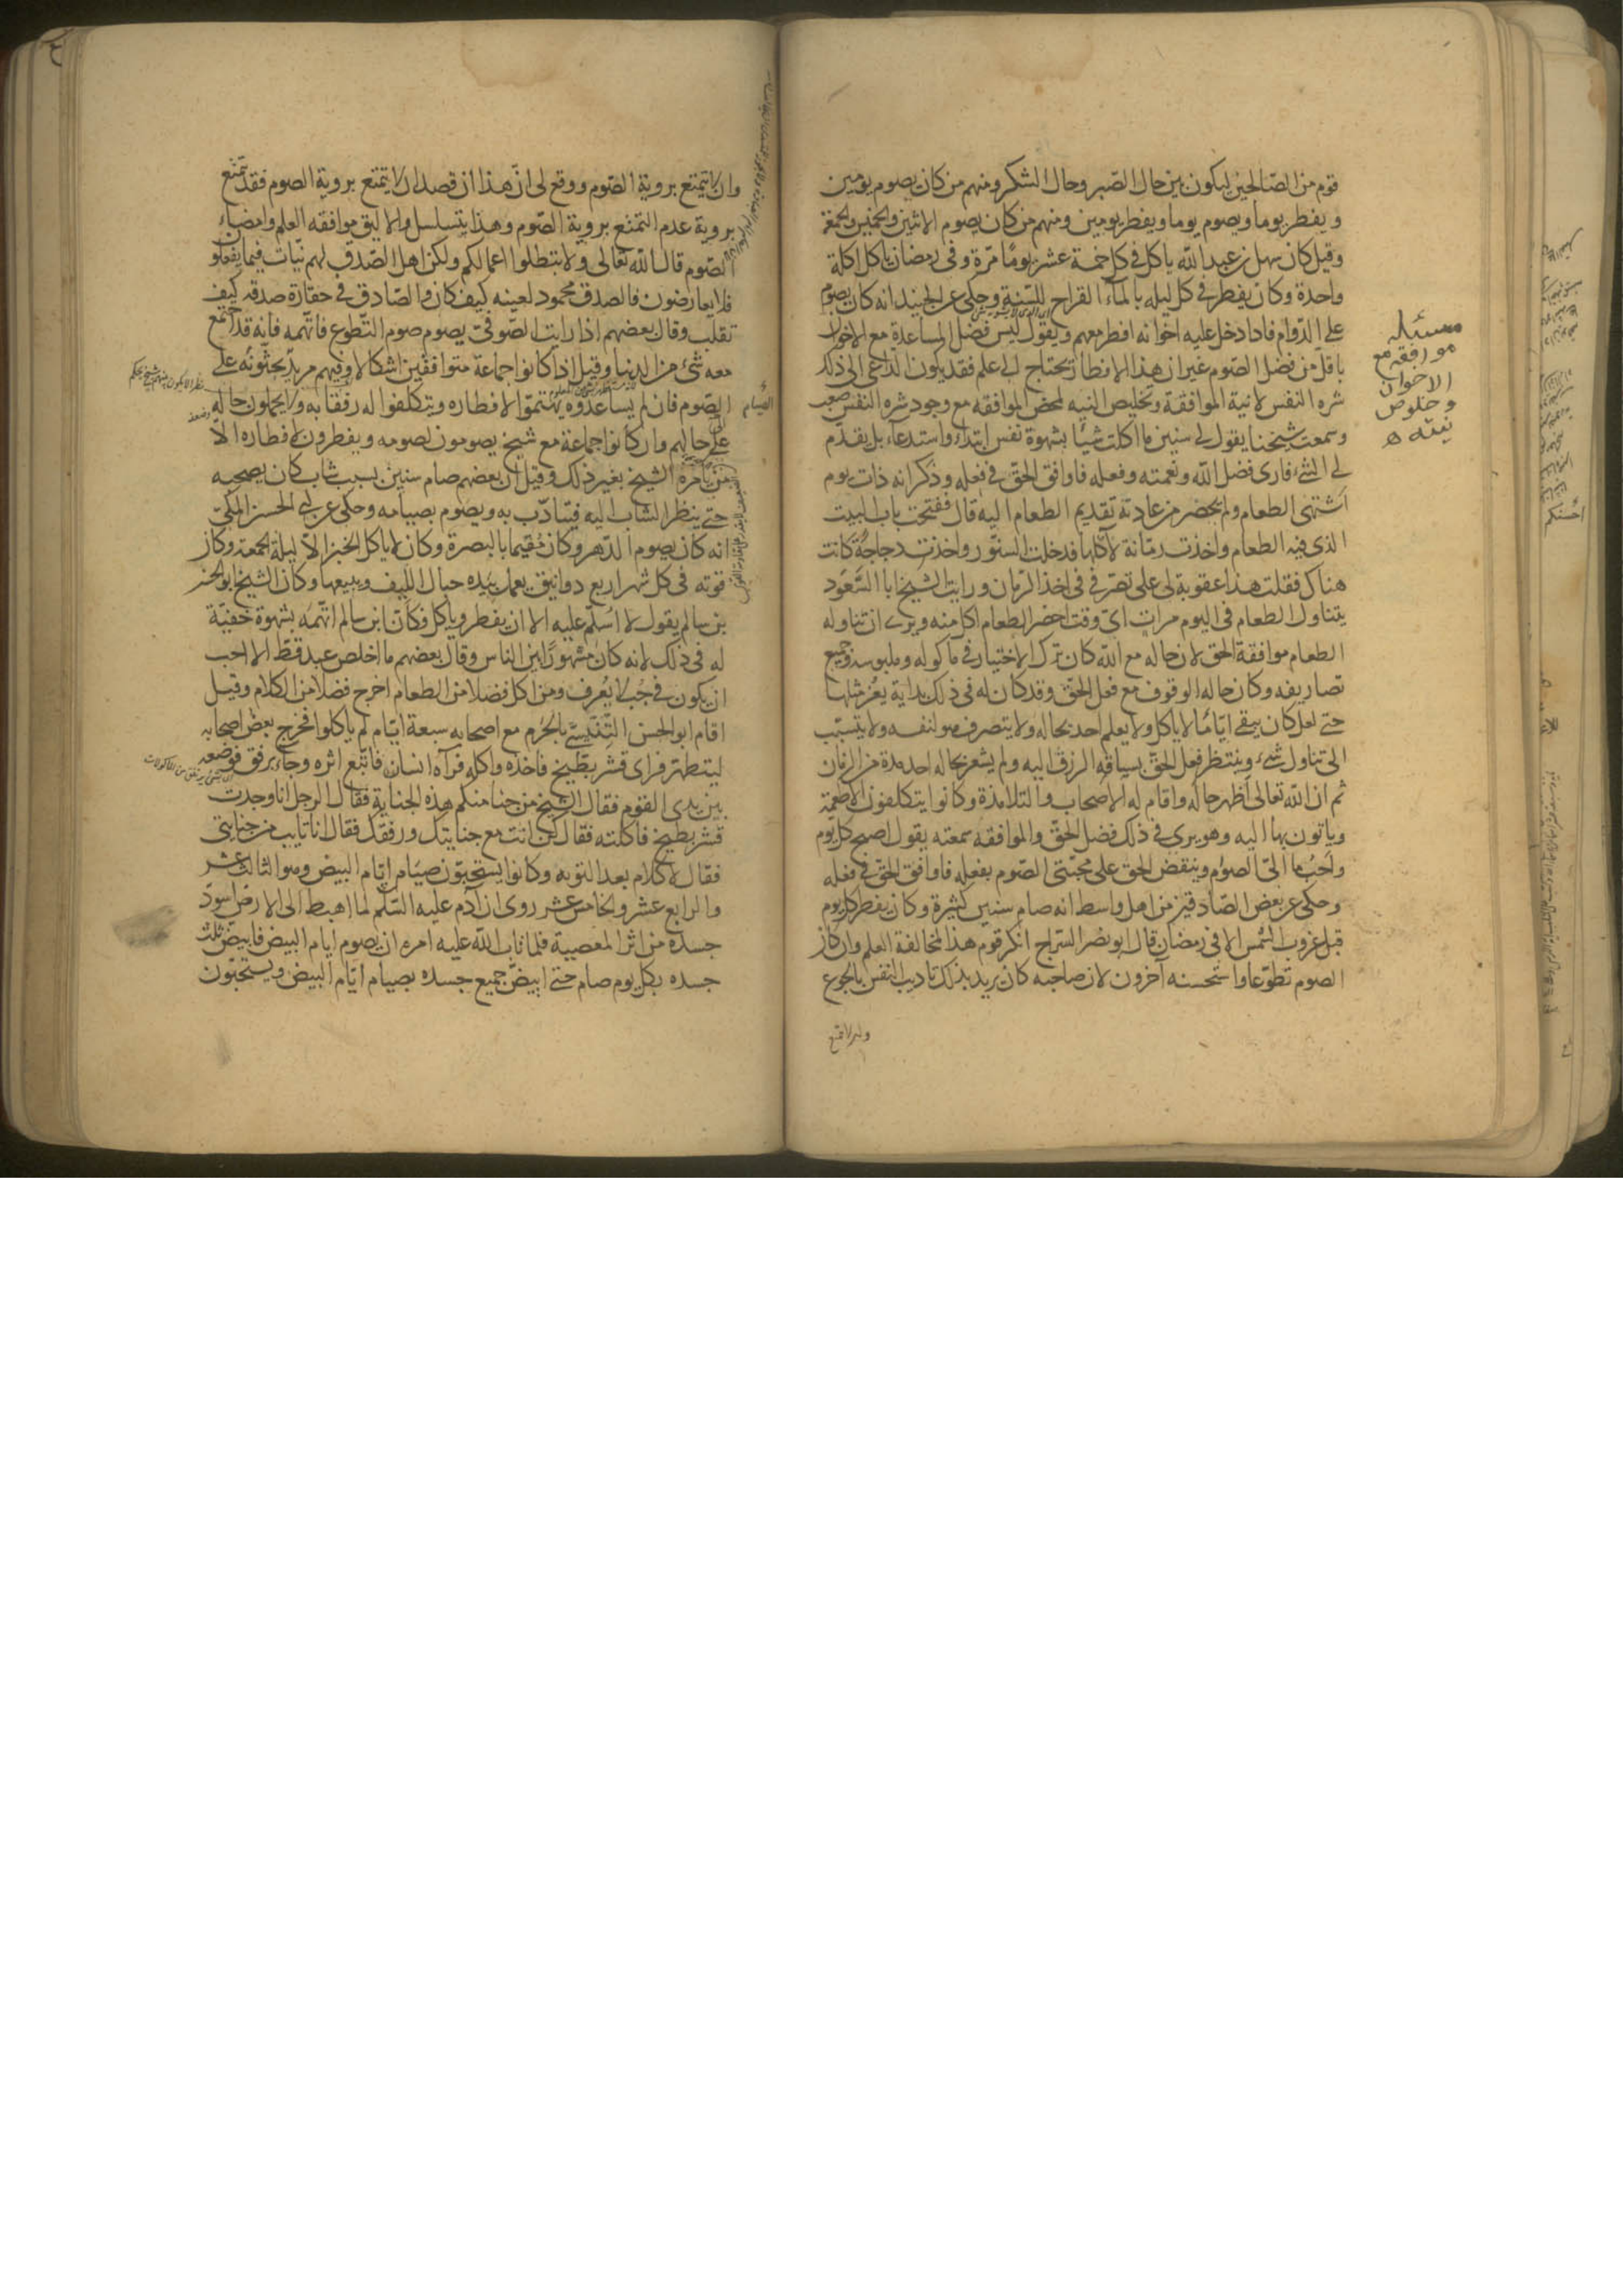 قوم من الصّالحين ليكون بين حال الصّبر وحال الشكر ومنهم من كان يصوم يومين
ويفطر يوما ويصوم يوما ويفطر يومين ومنهم من كان يصوم الاثنين والخميس والجمعة
وقيل كان سهل بن عبد الله ياكل في كل خمسة عشر يومًا مرّة وفي رمضان ياكل اكلة
واحدة وكان يفطر في كل ليله بالمآء القراح للسّنة وحكى عن الجنيد انه كان يصوم
على الدّوام فاذا دخل عليه اخوانه افطر معهم ويقول ليس فضل المساعدة مع الاخوان
باقل من فضل الصّوم غير ان هذا الافطار يحتاج الى علم فقد يكون الدّاعى الى ذلك
شره النفس لا نية الموافقة وتخليص النيه لمحض الموافقه مع وجود شره النفس صعب
وسمعت شيخنا يقول لي سنين ما اكلت شيًا بشهوة نفس ابتداء واستدعاء بل يقدّم
لي الشئ فارى فضل الله ونعمته وفعله فاوافق الحقّ في فعله وذكر انه ذات يوم
اشتهى الطعام ولم يحضر من عادته تقديم الطعام اليه قال ففتحت باب البيت
الذى فيه الطعام واخذت رمّانة لآكلها فدخلت السنّور واخذت دجاجة كانت
هناك فقلت هذا عقوبة لى على تصرّفى في اخذ الرّمان ورايت الشيخ ابا السّعود
يتناول الطعام في اليوم مرات اىّ وقت احضر الطعام اكل منه ويرى ان تناوله
الطعام موافقة الحق لان حاله مع الله كان ترك الاختيار في ماكوله وملبوسه وجميع
تصاريفه وكان حاله الوقوف مع فعل الحقّ وقد كان له في ذلك بداية يعز مثلها
حتى لعل كان يبقى ايّامًا لا ياكل ولا يعلم احد بحاله ولا يتصرف هو لنفسه ولا يتسبّب
الى تناول شيء وينتظر فعل الحقّ بسياقه الرزق اليه ولم يشعر بحاله احد مدة من الزمان
ثم ان الله تعالى اظهر حاله واقام له الاصحاب والتلامذة وكانوا يتكلفون الاطعمة
وياتون بها اليه وهو يرى في ذلك فضل الحقّ والموافقه سمعته يقول اصبح كل يوم
واحبّ ما الىّ الصوم وينقض الحق على محبّتى الصّوم بفعله فاوافق الحقّ في فعله
وحكى عن بعض الصّادقين من اهل واسط انه صام سنين كثيرة وكان يفطر كل يوم
قبل غروب الشمس الا في رمضان قال ابو نصر السّراج انكر قوم هذا لمخالفة العلم وان كان
الصوم تطوّعا واستحسنه آخرون لان صاحبه كان يريد بذلك تاديب النفس بالجوع
مسئله
موافقه مع
الاخوان
وخلوص
نيته
وان لا يتمتع بروية الصّوم ووقع لى انّ هذا ان قصد ان لا يتمتع بروية الصوم فقد تمتّع
بروية عدم التمتّع بروية الصّوم وهذا يتسلسل والاليق موافقه العلم وامضاء
الصّوم قال الله تعالى ولا تبطلوا اعمالكم ولكن اهل الصّدق لهم نيّات فيما يفعلو
فلا يعارضون فالصدق محمود لعينه كيف كان والصّادق في خفارة صدقه كيف
تقلب وقال بعضهم اذا رايت الصّوفىّ يصوم صوم التّطوع فاتّهمه فانه قد اجتمع
معه شئ من الدنيا وقيل اذا كانوا جماعة متوافقين اشكالا وفيهم مريد يحثّونه على
الصّوم فان لم يساعدوه يهتمّوا لافطاره ويتكلفوا له رفقا به ولا يحملون حاله
على حالهم وان كانوا جماعة مع شيخ يصومون لصومه ويفطرون لافطاره الّا
من يامره الشيخ بغير ذلك وقيل ان بعضهم صام سنين بسبب شاب كان يصحبه
حتى ينظر الشاب اليه فيتادّب به ويصوم بصيامه وحكى عن ابى الحسن المكىّ
انه كان يصوم الدّهر وكان مُقيما بالبصرة وكان لا ياكل الخبز الا ليلة الجمعة وكان
قوته في كل شهر اربع دوانيق يعمل بيده حبال الليف ويبيعها وكان الشيخ ابو الحسن
بن سالم يقول لا اسُلّم عليه الا ان يفطر وياكل فكان ابن سالم اتّهمه بشهوة خفيّة
له في ذلك لانه كان مشهورًا بين الناس وقال بعضهم ما اخلص عبد قطّ الا احب
ان يكون في جبّ لا يُعرف ومن اكل فضلا من الطعام اخرج فضلا من الكلام وقيل
اقام ابو الحسن التّنّيسى بالحَرم مع اصحابه سبعة ايّام لم ياكلوا فخرج بعض اصحابه
ليتطهر فراى قشر بطّيخ فاخذه واكله فرآه انسان فاتّبع اثره وجاء برفق فوضعه
بين يدى القوم فقال الشيخ من جنا منكم هذه الجناية فقال الرجل انا وجدت
قشر بطيخ فاكلته فقال كن انت مع جنايتك ورفقك فقال انا تايب من جنايتي
فقال لا كلام بعد التوبه وكانوا يستحبّون صيَام ايّام البيض وهو الثالث عشر
والرابع عشر والخامس عشر روى ان آدم عليه السّلم لما اهبط الى الارض اسودّ
جسده من اثر المعصية فلما تاب الله عليه امره ان يصوم ايام البيض فابيضّ ثلث
جسده بكل يوم صام حتى ابيضّ جميع جسده بصيام ايّام البيض ويستحبّون